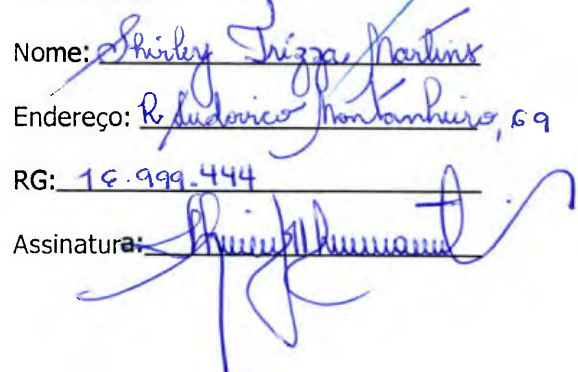 Nome: Shirley Trizza Martins
Endereço: R Ludovico Montanheiro, 69
RG: 16.999.444
Assinatura: